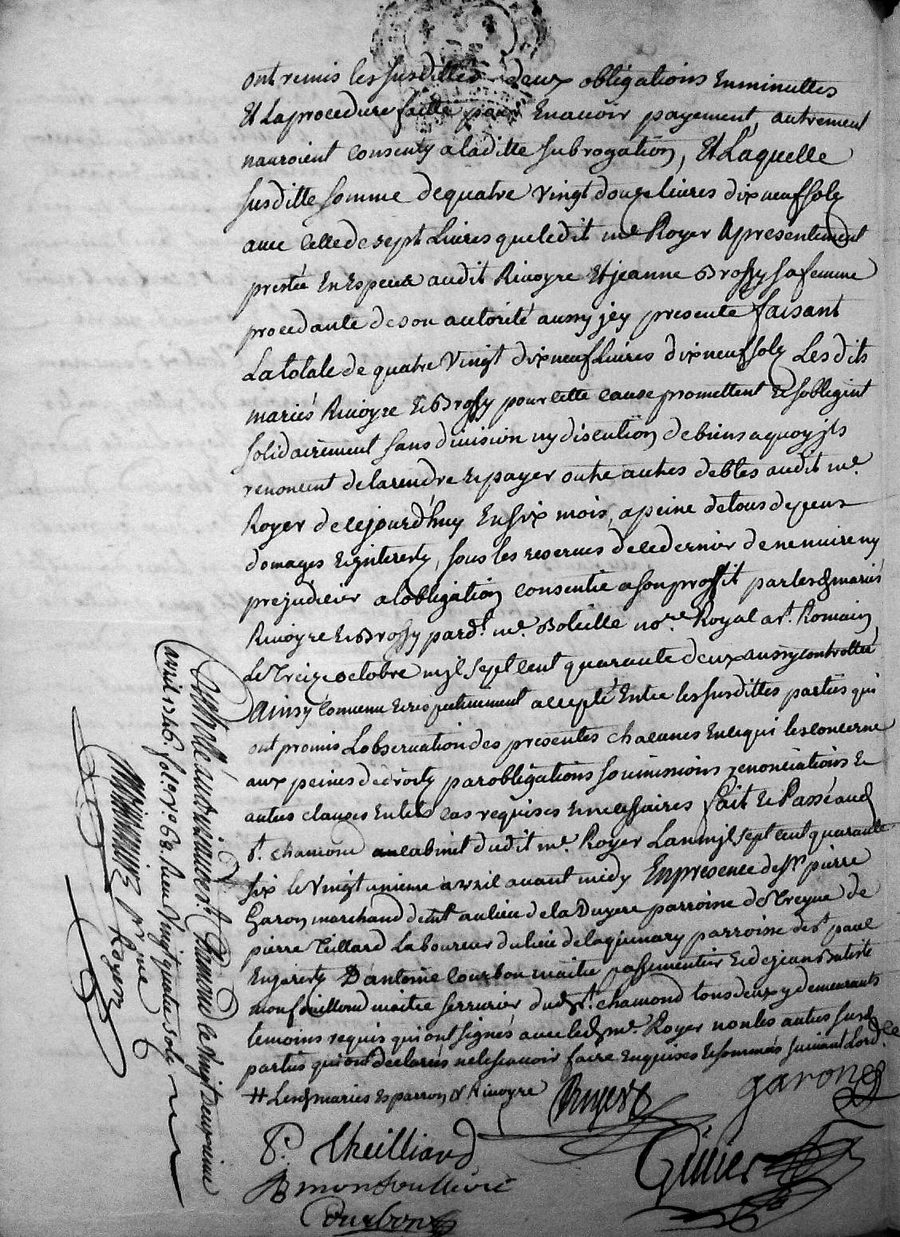 ont remis les susdittes deux obligations en minuttes
Et la procedure faitte pour En avoir payement, autrement
nauroient consenty a laditte subrogation, Et Laquelle
susditte somme de quatre vingt douze livres dix neuf solz
avec celle de sept Livres que ledit me Royer a presentement
prestée En Espece audit Rivoyre Et jeanne Brossy sa femme
procedante de son autorité aussy jcy presente faisant
La totale de quatre vingt dix neuf Livres dix neuf solz Les dits
mariés Rivoyre et Brossy pour cette cause promettent et sobligent
solidairement sans division ny discution de biens a quoy jls
renoncent de la rendre et payer outre autres debtes audit me
Royer de cejourd'huy En six mois, a peine de tous depens
domages et jnterestz, sous les reserves de ce dernier de ne nuire ny
prejudicier a lobligation consentie a son proffit par lesd mariés
Rivoyre et Brossy pard. me Boteille nore Royal a st Romain
Le treize octobre mjl sept cent quarante deux aussy controllée
Ainsy convenu et respectivement accepté Entre les susdittes parties qui
ont promis Lobservation des presentes chacunes En ce qui les concerne
aux peines de droity par obligations soumissions renonciations et
autres clauses En tels cas requises et necessaires fait et Passé aud
st chamond au cabinet dudit me Royer Lan mjl sept cent quarante
six le vingt unieme avril avant midy En presence de sr pierre
Garon marchand demt au lieu de la Bruyere parroisse de de
pierre Teillard Laboureur du lieu de parroisse de st paul
En jarest, D'antoine Courbon maitre passementier et de jean Batiste
monfouilloud maitre serrurier dud st chamond tous deux y demeurants
temoins requis qui ont signés avec led me Royer non les autres susd
parties qui ont declarés ne le scavoir faire Enquises et sommés suivant Lordce
# Lesd mariés Esparron & Rivoyre Royer garon
P. theilliard
B monfoullioud
Courbon
Controllé audit lieu de st Chamond le vingt deuxieme
avril 1746 fol. vo 68. Reçu vingt quatre solz
Royer